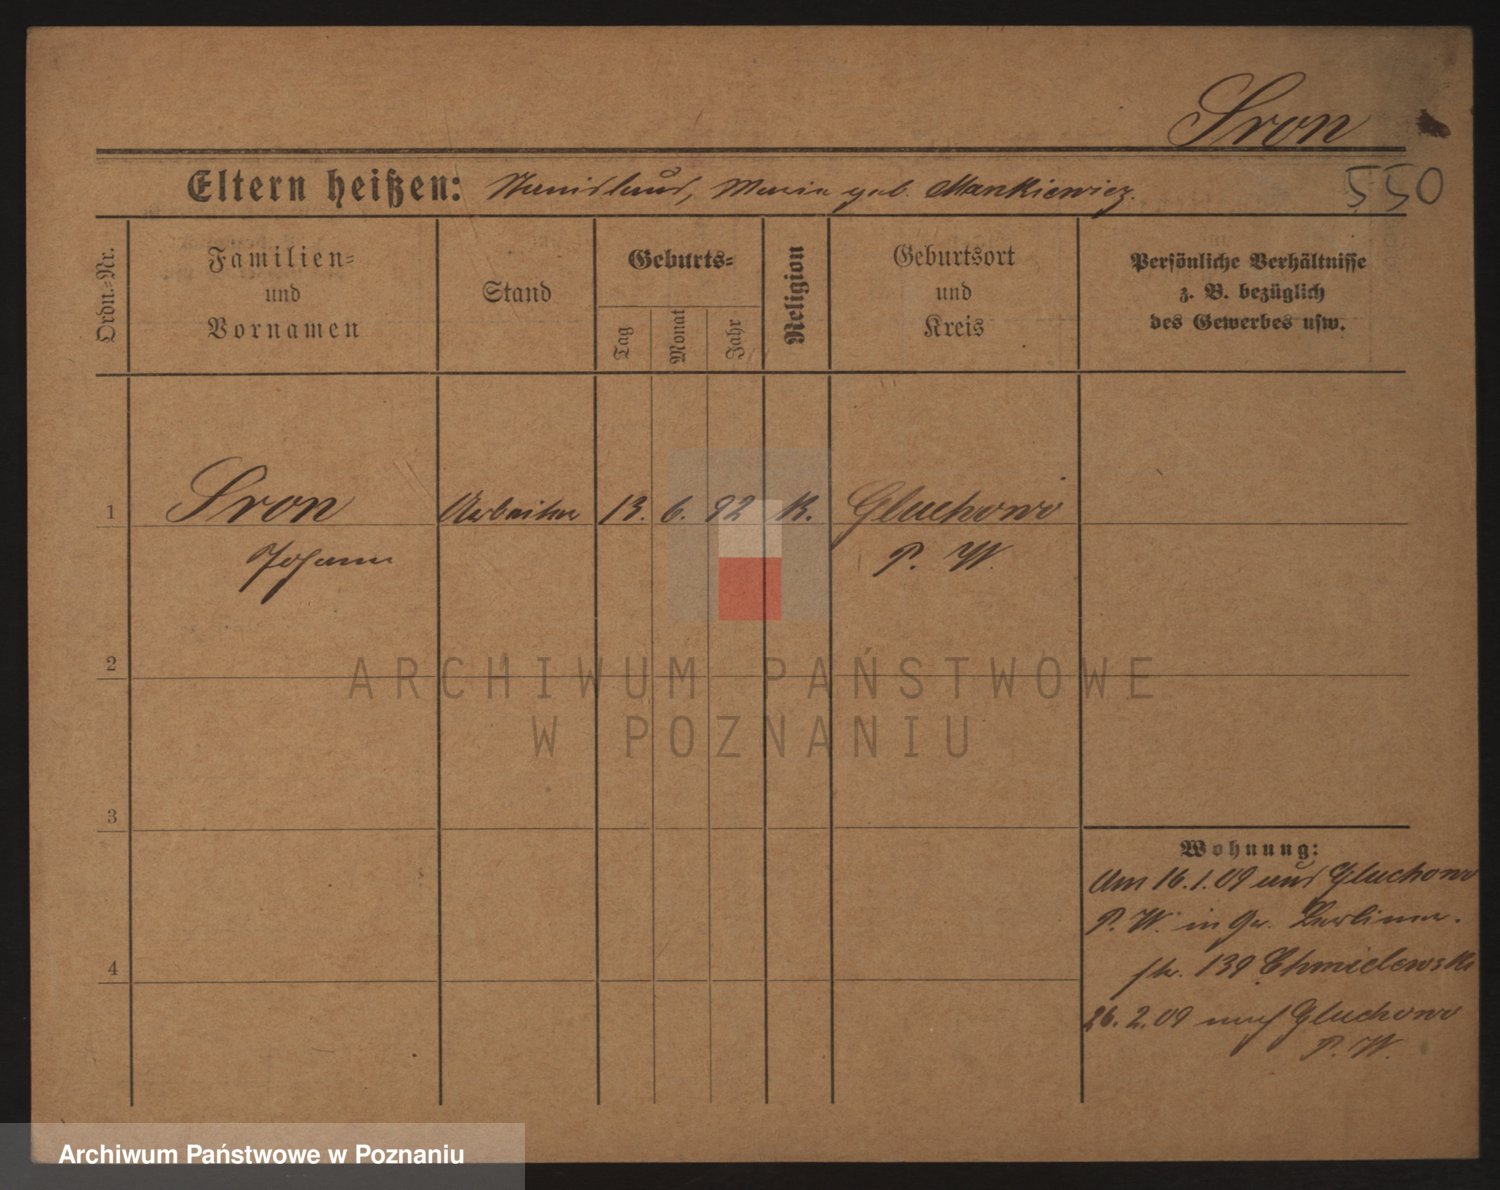 Sron
550
Eltern heißen: Stanislaus, Maria geb. Mankiewicz.
Ordn.=Nr.
Familien=
und
Vornamen
Stand
Geburts=
Tag
Monat
Jahr
Religion
Geburtsort
und
Kreis
Persönliche Verhältnisse
z. B. bezüglich
des Gewerbes usw.
1 Sron Arbeiter 13. 6. 92 K. Gluchowo
Johann P. W.
2
ARCHIWUM PAŃSTWOWE
W POZNANIU
3
Wohnung:
Am 16.1.09 aus Gluchowo
P. W. in Gr. Berliner-
str. 139 Chmielewski
4
26.2.09 nach Gluchowo
P. W.
Archiwum Państwowe w Poznaniu